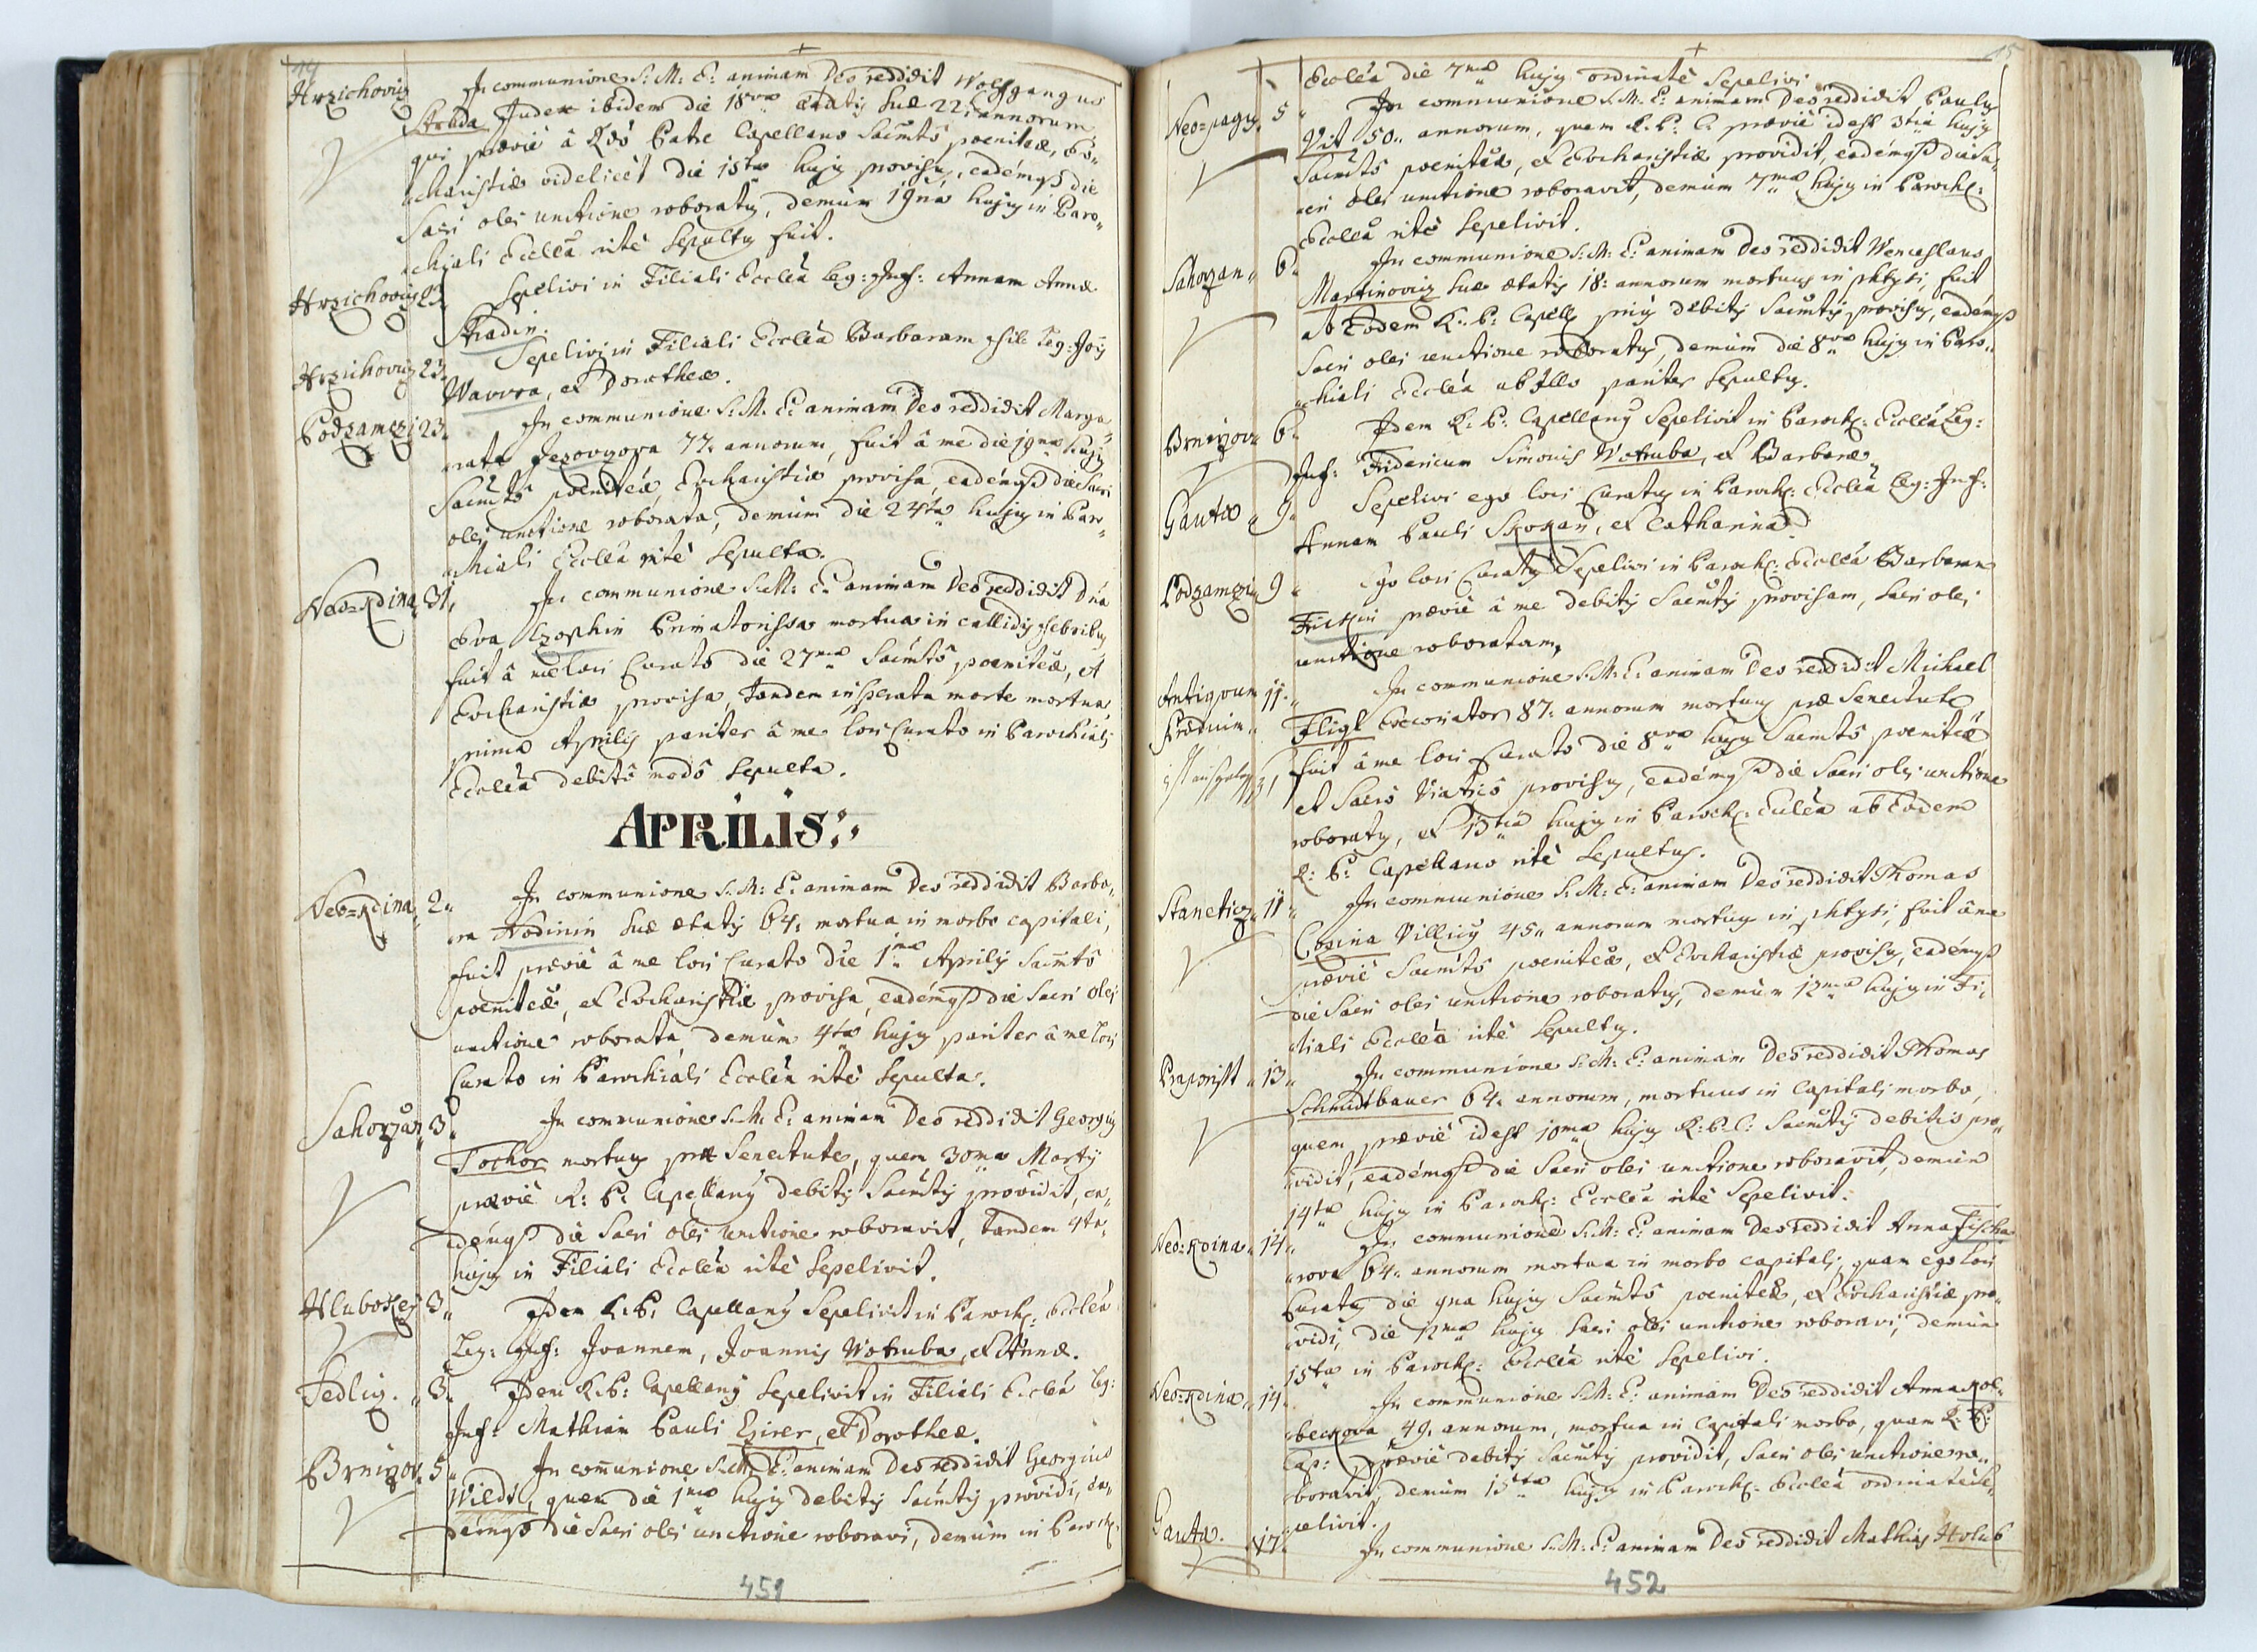 14
Hrzichoviz
In communione S: M: E: animam Deo reddidit Wolfgangus
Strada Judex ibidem die 18va aetatis suae 22. annorum
qui praevie à Rdo Patre Capellano Sacmto poenitae, Eu-
charistiae videlicet die 15ta hujus provisus, eadémque die
Sacri olei unctione roboratus, demum 19na hujus in Paro-
chiali Eccleâ ritè Sepultus fuit.
Hrzichoviz 23.
Sepelivi in Filiali Eccleâ Leg: Inf: Annam Annae
Stradin.
Hrzichoviz 23.
Sepelivi in Filiali Eccleâ Barbaram fil: Leg: Jois
Wavvra, et Dorotheae.
Podzamczi 23.
In communione S: M: E: animam Deo reddidit Marga-
rata 77. annorum, fuit â me die 19na hujus
Sacmto poenitêa, Eucharistiae provisa, eadémque die Sacri
olei unctione roborata, demum die 24ta hujus in Paro-
chiali Eccleâ ritè Sepulta.
Neo=Kdina 31.
In communione S: M: E: animam Deo reddidit Dna
Eva Czophin Primatorissa mortua in callidis febribus
fuit â me loci Curato die 27ma Sacmto poenitêae, et
Eucharistiae provisa, tandem insperata morte mortua,
prima Aprilis pariter â me loci Curato in Parochiali
Eccleâ debito modo Sepulta.
APRILIS:
Neo=Kdina 2.
In communione S: M: E: animam Deo reddidit Barba-
ra Hodinin suae aetatis 64. mortua in morbo capitali,
fuit praevie â me loci Curato die 1ma Aprilis Sacmto
poenitêae, et Eucharistiae provisa, eadémque die Sacri olei
unctione roborata demum 4ta hujus pariter â me loci
Curato in Parochiali Eccleâ ritè Sepulta.
Sahorzan 3.
In communione S: M: E: animam Deo reddidit Georgius
Tochor mortuus prae Senectute, quem 30ma Martij
praevie R: P: Capellanus debitis Sacmtis providit, ea-
démque die Sacri olei unctione roboravit, tandem 4ta
hujus in Filiali Eccleâ ritè Sepelivit.
Hluboken 3.
Idem R: P: Capellanus Sepelivit in Paroch: Eccleâ
Leg: Inf: Joannem, Joannis Wotruba, et Annae.
Sedliz. 3.
Idem R: P: Capellanus Sepelivit in Filiali Eccleâ Leg:
Inf: Mathiam Pauli Ezirer, et Dorotheae.
Brnizov 5.
In communione S: M: E: animam Deo reddidit Georgius
Wildt, quem die 1ma hujus debitis Sacmtis providi, ea-
démque die Sacri olei unctione roboravi, demum in Paroch:
451
15
Eccleâ die 7ma hujus ordinatè Sepelivi
Neo=pagus 5.
In communione S: M: E: animam Deo reddidit Paulus
Vit 50. annorum, quem R: P: C: praevie id est 3tia hujus
Sacmto poenitêae, et Eucharistiae providit, eadémque die Sa-
cri olei unctione roboravit, demum 7ma hujus in Paroch:
Eccleâ ritè Sepelivit.
Sahorzan 6.
In communione S: M: E: animam Deo reddidit Wenceslaus
Martinoviz suae aetatis 18: annorum mortuus in phtysi, fuit
ab Eodem R: P: Capell prius debitis Sacmtis provisus, eadémque
Sacri olei unctione roboratus, demum die 8va hujus in Paro-
chiali Eccleâ ab Illo pariter Sepultus.
Brnizov 6.
Idem R: P: Capellanus Sepelivit in Paroch: Eccleâ Leg:
Inf: Fridericum Simonis Wotruba, et Barbarae
Gauta 9.
Sepelivi ego loci Curatus in Paroch: Eccleâ Leg: Inf:
Annam Pauli Skokan, et Catharinae.
Podzamczi 9
Ego loci Curatus Sepelivi in Paroch: Eccleâ Barbaram
praevie â me debitis Sacmtis provisam, Sacri olei
unctione roboratam.
Antiquum 11.
Predium
In communione S: M: E: animam Deo reddidit Michael
Fligl Excoriator 87: annorum mortuus prae Senectute
fuit â me loci Curato die 8va hujus Sacmto poenitêae
et Sacro Viatico provisus, eadémque die Sacri olei unctione
roboratus, et 13tia hujus in Paroch: Eccleâ ab Eodem
R: P: Capellano ritè Sepultus.
Staneticz 11
In communione S: M: E: animam Deo reddidit Thomas
Cprina Villicus 45. annorum mortuus in phtysi, fuit âme
praevie Sacmto poenitêae, et Eucharistiae provisus, eadémque
die Sacri olei unctione roboratus, demum 12ma hujus in Fi-
liali Eccleâ ritè Sepultus.
Praporist 13.
In communione S: M: E: animam Deo reddidit Thomas
Schmidtbauer 64. annorum, mortuus in Capitali morbo,
quem praevie id est 10ma hujus R: P: C: Sacmtis debitis pro-
vidit, eadémque die Sacri olei unctione roboravit, demum
14ta hujus in Paroch: Eccleâ ritè Sepelivit.
Neo=Kdina 14.
In communione S: M: E: animam Deo reddidit Anna Fischa-
rova 64. annorum mortua in morbo capitali, quam ego loci
Curatus die 9na hujus Sacmto poenitêae, et Eucharistiae pro-
vidi, die 12ma hujus Sacri olei unctione roboravi, demum
15ta in Paroch: Eccleâ ritè Sepelivi.
Neo=Kdina 14.
In communione S: M: E: animam Deo reddidit Anna Kol-
beckova 49. annorum, mortua in Capitali morbo, quam R: P:
Cap: praevie debitis Sacmtis providit, Sacri olei unctione ro-
boravit, demum 15ta hujus in Paroch: Eccleâ ordinatè Se-
pelivit.
Gauta. 17.
In communione S: M: E: animam Deo reddidit Mathias Holub
452